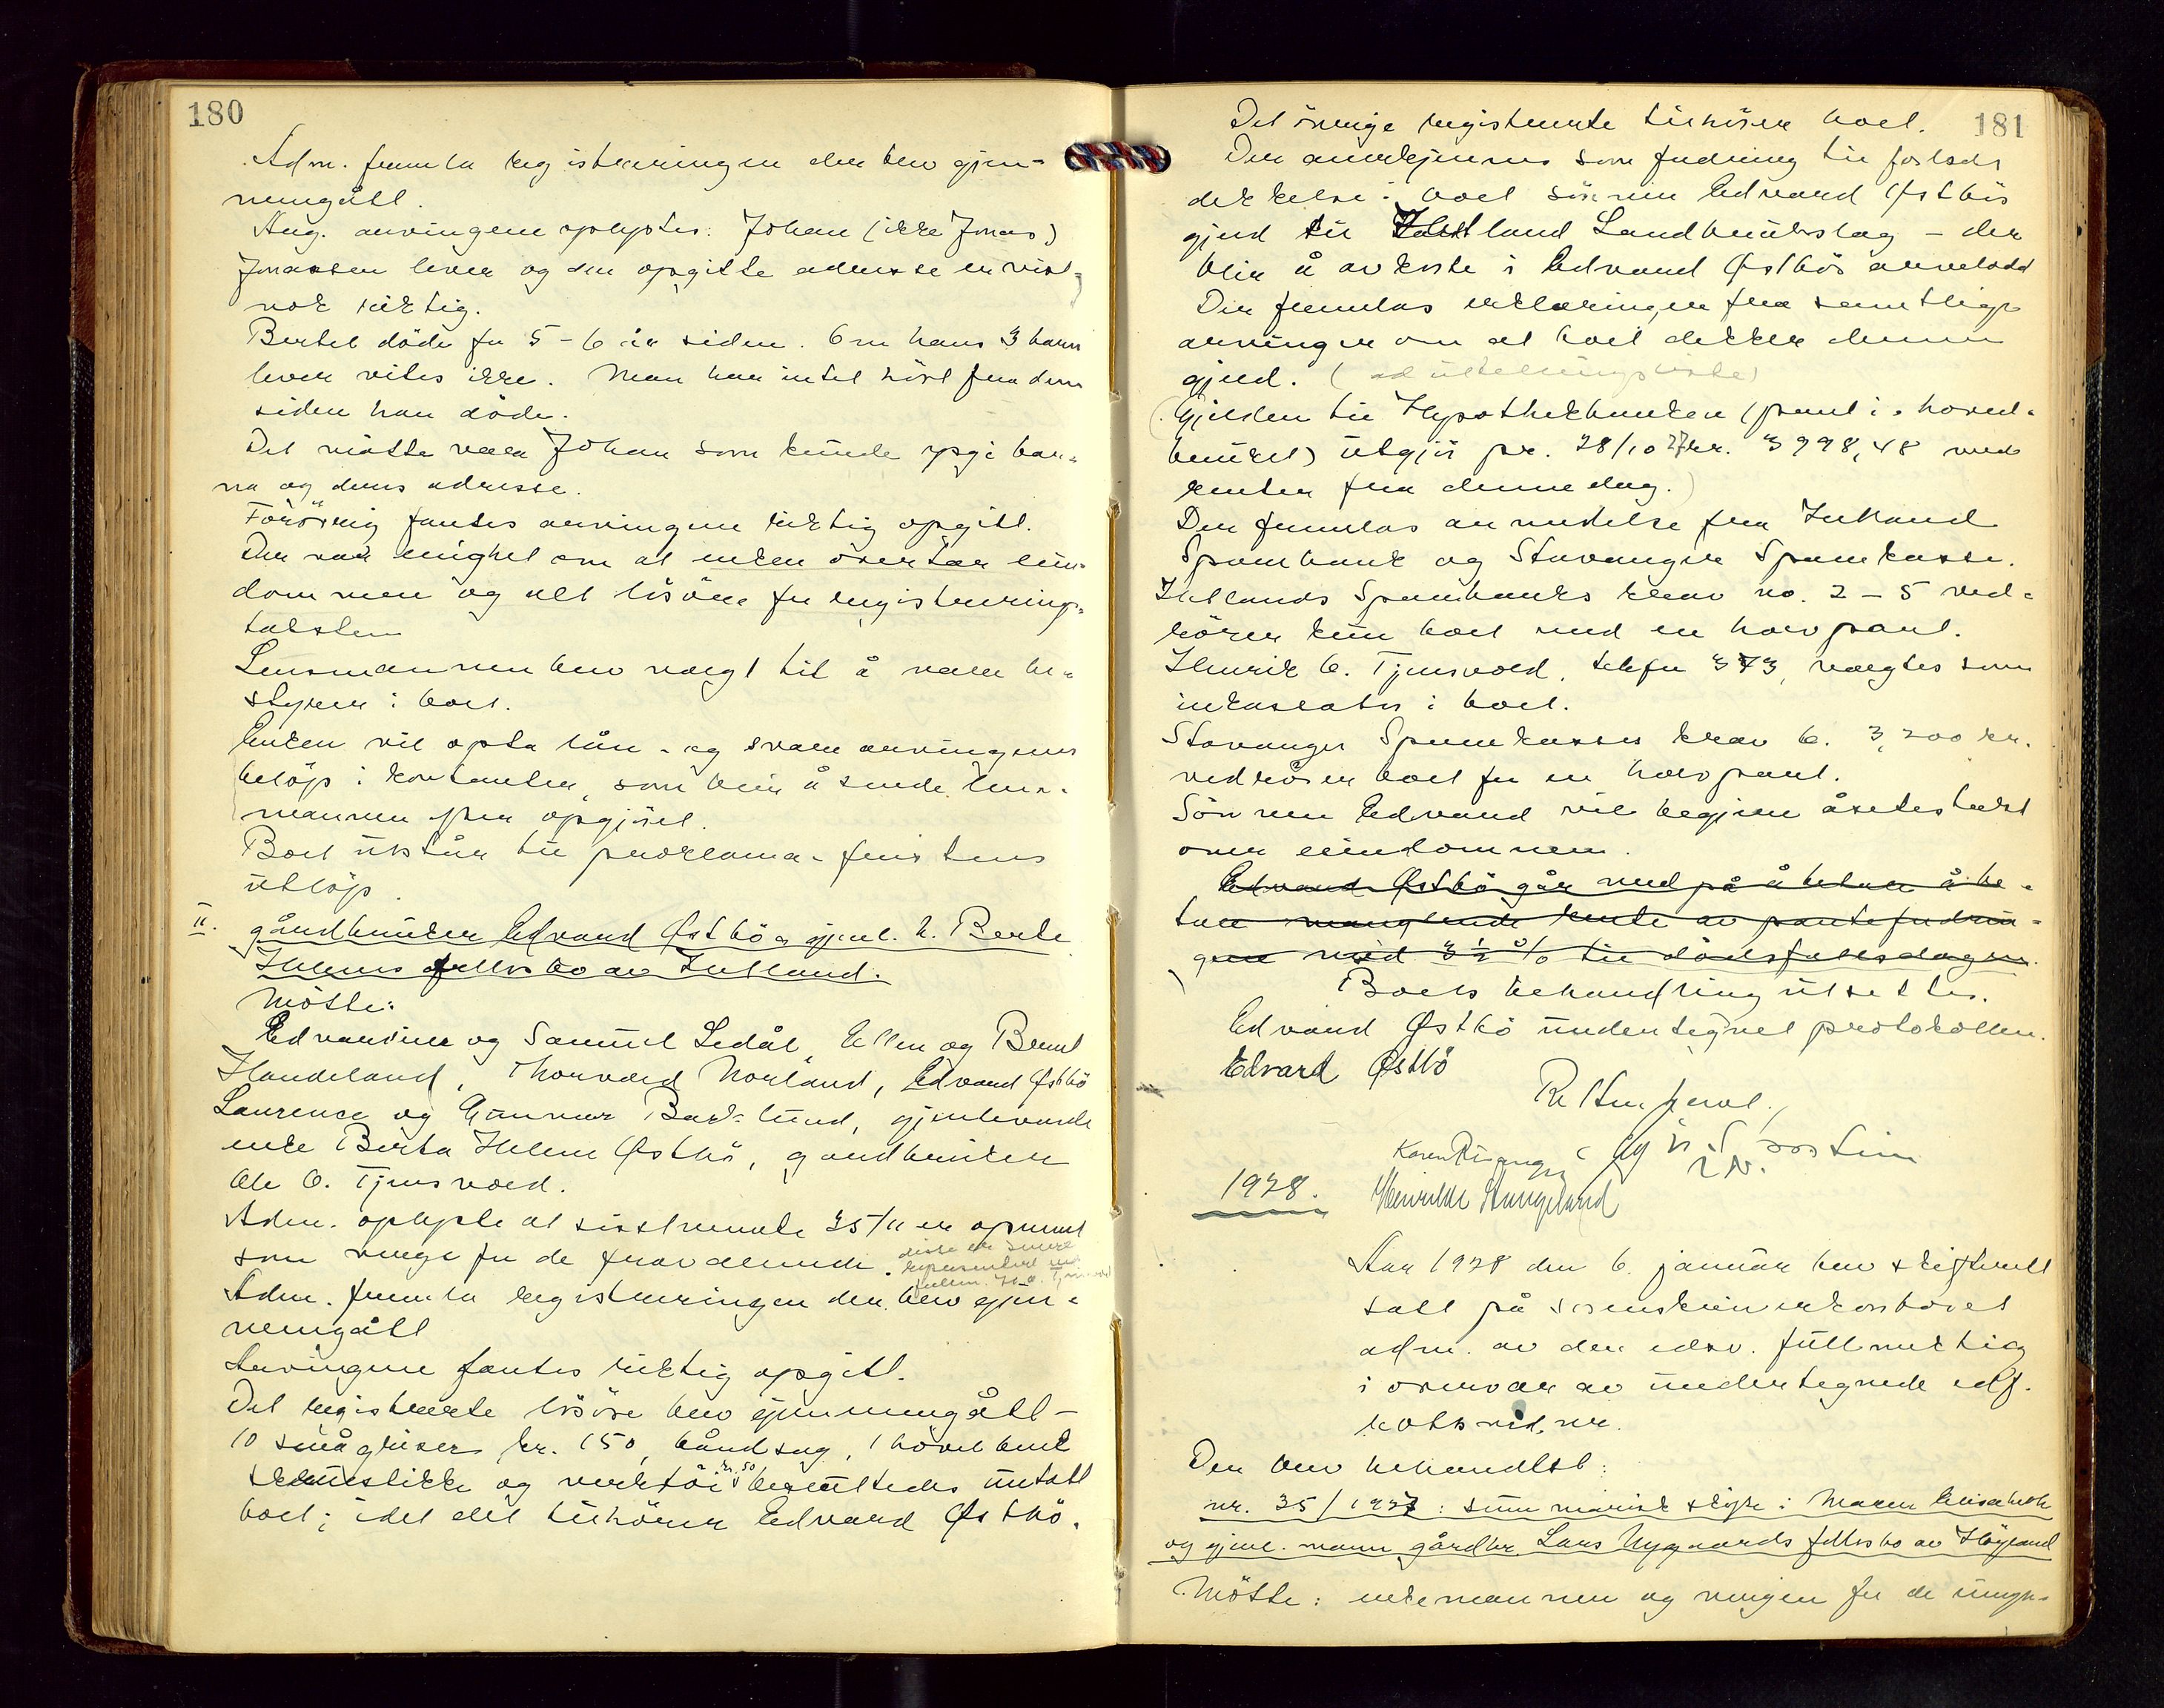 180
Adm. fremla registreringen der blev gjen-
nemgått.
Ang. arvingene oplystes: Johan (ikke Jonas)
Jonassen lever og den opgitte adresse er vist-
nok riktig.
Bertel döde for 5-6 år siden. Om hans 3 barn
lever vites ikke. Man har intet hört fra dem
siden han döde.
Det måtte være Johan som kunde opgi bar-
na og deres adresse.
Forövrig fantes arvingene riktig opgitt.
Der var enighet om at enken overtar eien-
dommen og alt lösöre for registrerings-
taksten
Lensmannen blev valgt til å være be-
styrer i boet.
Enken vil opta lån - og svare arvingenes
belöp i kontanter, som blir å sende lens-
mannen for opgjöret.
Boet utstår til proklama-fristens
utlöp.
II. gårdbruker Edvard Østbö & gjenl. h. Berte
Helenes fellesbo av Jelland.
Mötte:
Edvardine og Samuel Ledål, Ellen og Bernt
Handeland, Thorvald Norland, Edvard Østbö
Laurence og Gunnar Back-Lund, gjenlevende
enke Berta Helene Østbö, gårdbruker
Ole O. Tjensvold.
Adm. oplyste at sistnevnte 25/11 er opnevnt
som verge for de fraværende. disse er
representert ved
Adm. fremla registreringen der blev gjen-
nemgått
Arvingene fantes riktig opgitt.
Det registrerte lösöre blev gjennemgått -
10 smågriser kr. 150, båndsag, 1 hövelbenk
skruestikke og verktöi kr. 50 besluttedes uttatt
boet; idet det tilhörer Edvard Østbö.
181
Det övrige registrerte tilhörer boet.
Der anerkjennes som fordring til forlods
dekkelse i boet sönnen Edvard Østbös
gjeld til Jelland Landbrukslag - der
blir å avkorte i Edvard Østbös arvelodd
Der fremlas erklæringer fra samtlige
arvinger om at boet dekker denne
gjeld. (
(Gjelden til Hypothekbanken (pant i hoved-
bruket) utgjör pr. 28/10 27 kr. 3998,48 med
renter fra denne dag.)
Der fremlas anmeldelse fra Jelland
Sparebank og Stavanger Sparekasse.
Jellands Sparebanks krav no. 2-5 ved-
rörer kun boet med en halvpart.
Henrik O. Tjensvold, telefon 373, valgtes som
inkassator i boet.
Stavanger Sparekasses krav 6. 3,200 kr.
vedrörer boet for en halvpart.
Sönnen Edvard vil begjære åsetestakst
over eiendommen.
Edvard Østbö går med på å betale å be-
tale manglende rente av pantefordrin-
gene med 3½ % til dödsfallsdagen.
Boets behandling utsettes.
Edvard Østbö undertegnet protokollen.
Edvard Østbö
Retten hevet.
Karen Ringnes
Henrikke Stangeland
1928.
Aar 1928 den 6. januar blev skifterett
satt på sorenskriverkontoret
adm. av den edsv. fullmektig
i overvær av undertegnede edf.
rettsvidner.
Der blev behandlet:
nr. 35/1927: summarisk skifte i Maren Elisabeth
og gjenl. mann gårdbr. Lars Nygaards fellesbo av Höyland
Mötte: enkemannen og vergen for de umyn-